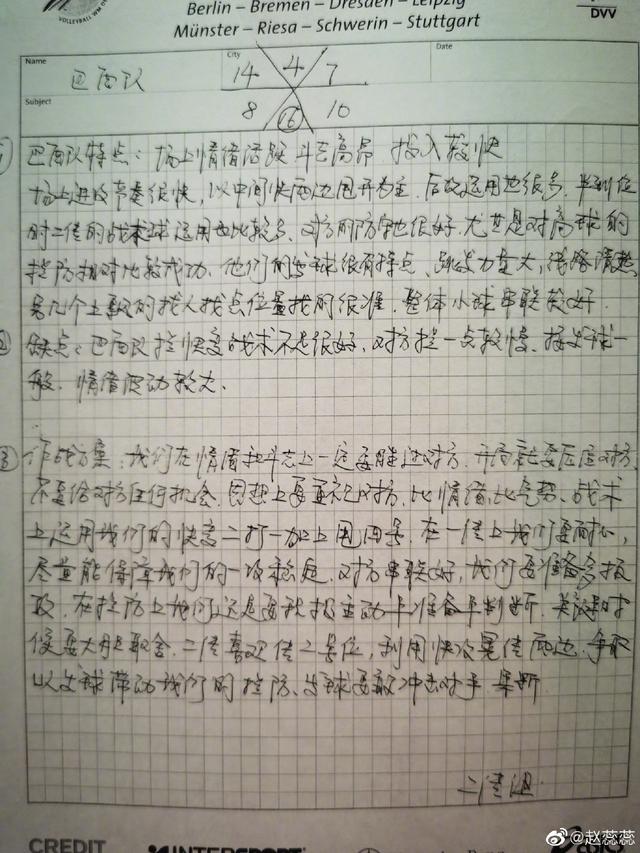 VOLLEYBALL WM
Berlin – Bremen – Dresden – Leipzig
Münster – Riesa – Schwerin – Stuttgart
DVV
Name
巴西队
City
14 4 7
Date
Subject
8 16 10
巴西队特点：场上情绪活跃 斗志高昂 投入较快
场上进攻节奏很快，以中间快两边甩开为主，后攻运用也很多，半到位
时二传的战术球运用也比较多，对方的防守也很好，尤其是对高球的
拦防相对比较成功，他们的发球很有特点，跳发力量大，线路清楚，
另几个上飘的找人找点位置找的很准，整体小球串联较好。
② 缺点：巴西队拦快变战术不是很好，对方拦一点较慢、接发球一
般、情绪波动较大。
③ 作战方案：我们在情绪和斗志上一定要胜过对方，开局就要压住对方，
不要给对方任何机会，思想上要重视对方，比情绪，比气势、战术
上运用我们的快变二打一加上甩四号，在一传上我们要耐心，
尽量能保障我们的一攻稳定，对方串联好，我们要准备多拍
，在拦防上我们还是要积极主动 准备 判断，关键时
候要大胆取舍，二传喜欢传2号位，利用快攻晃传两边，争取
以发球带动我们的拦防、发球要敢冲击对手 果断
二传组
CREDIT
INTERSPORT
@赵蕊蕊